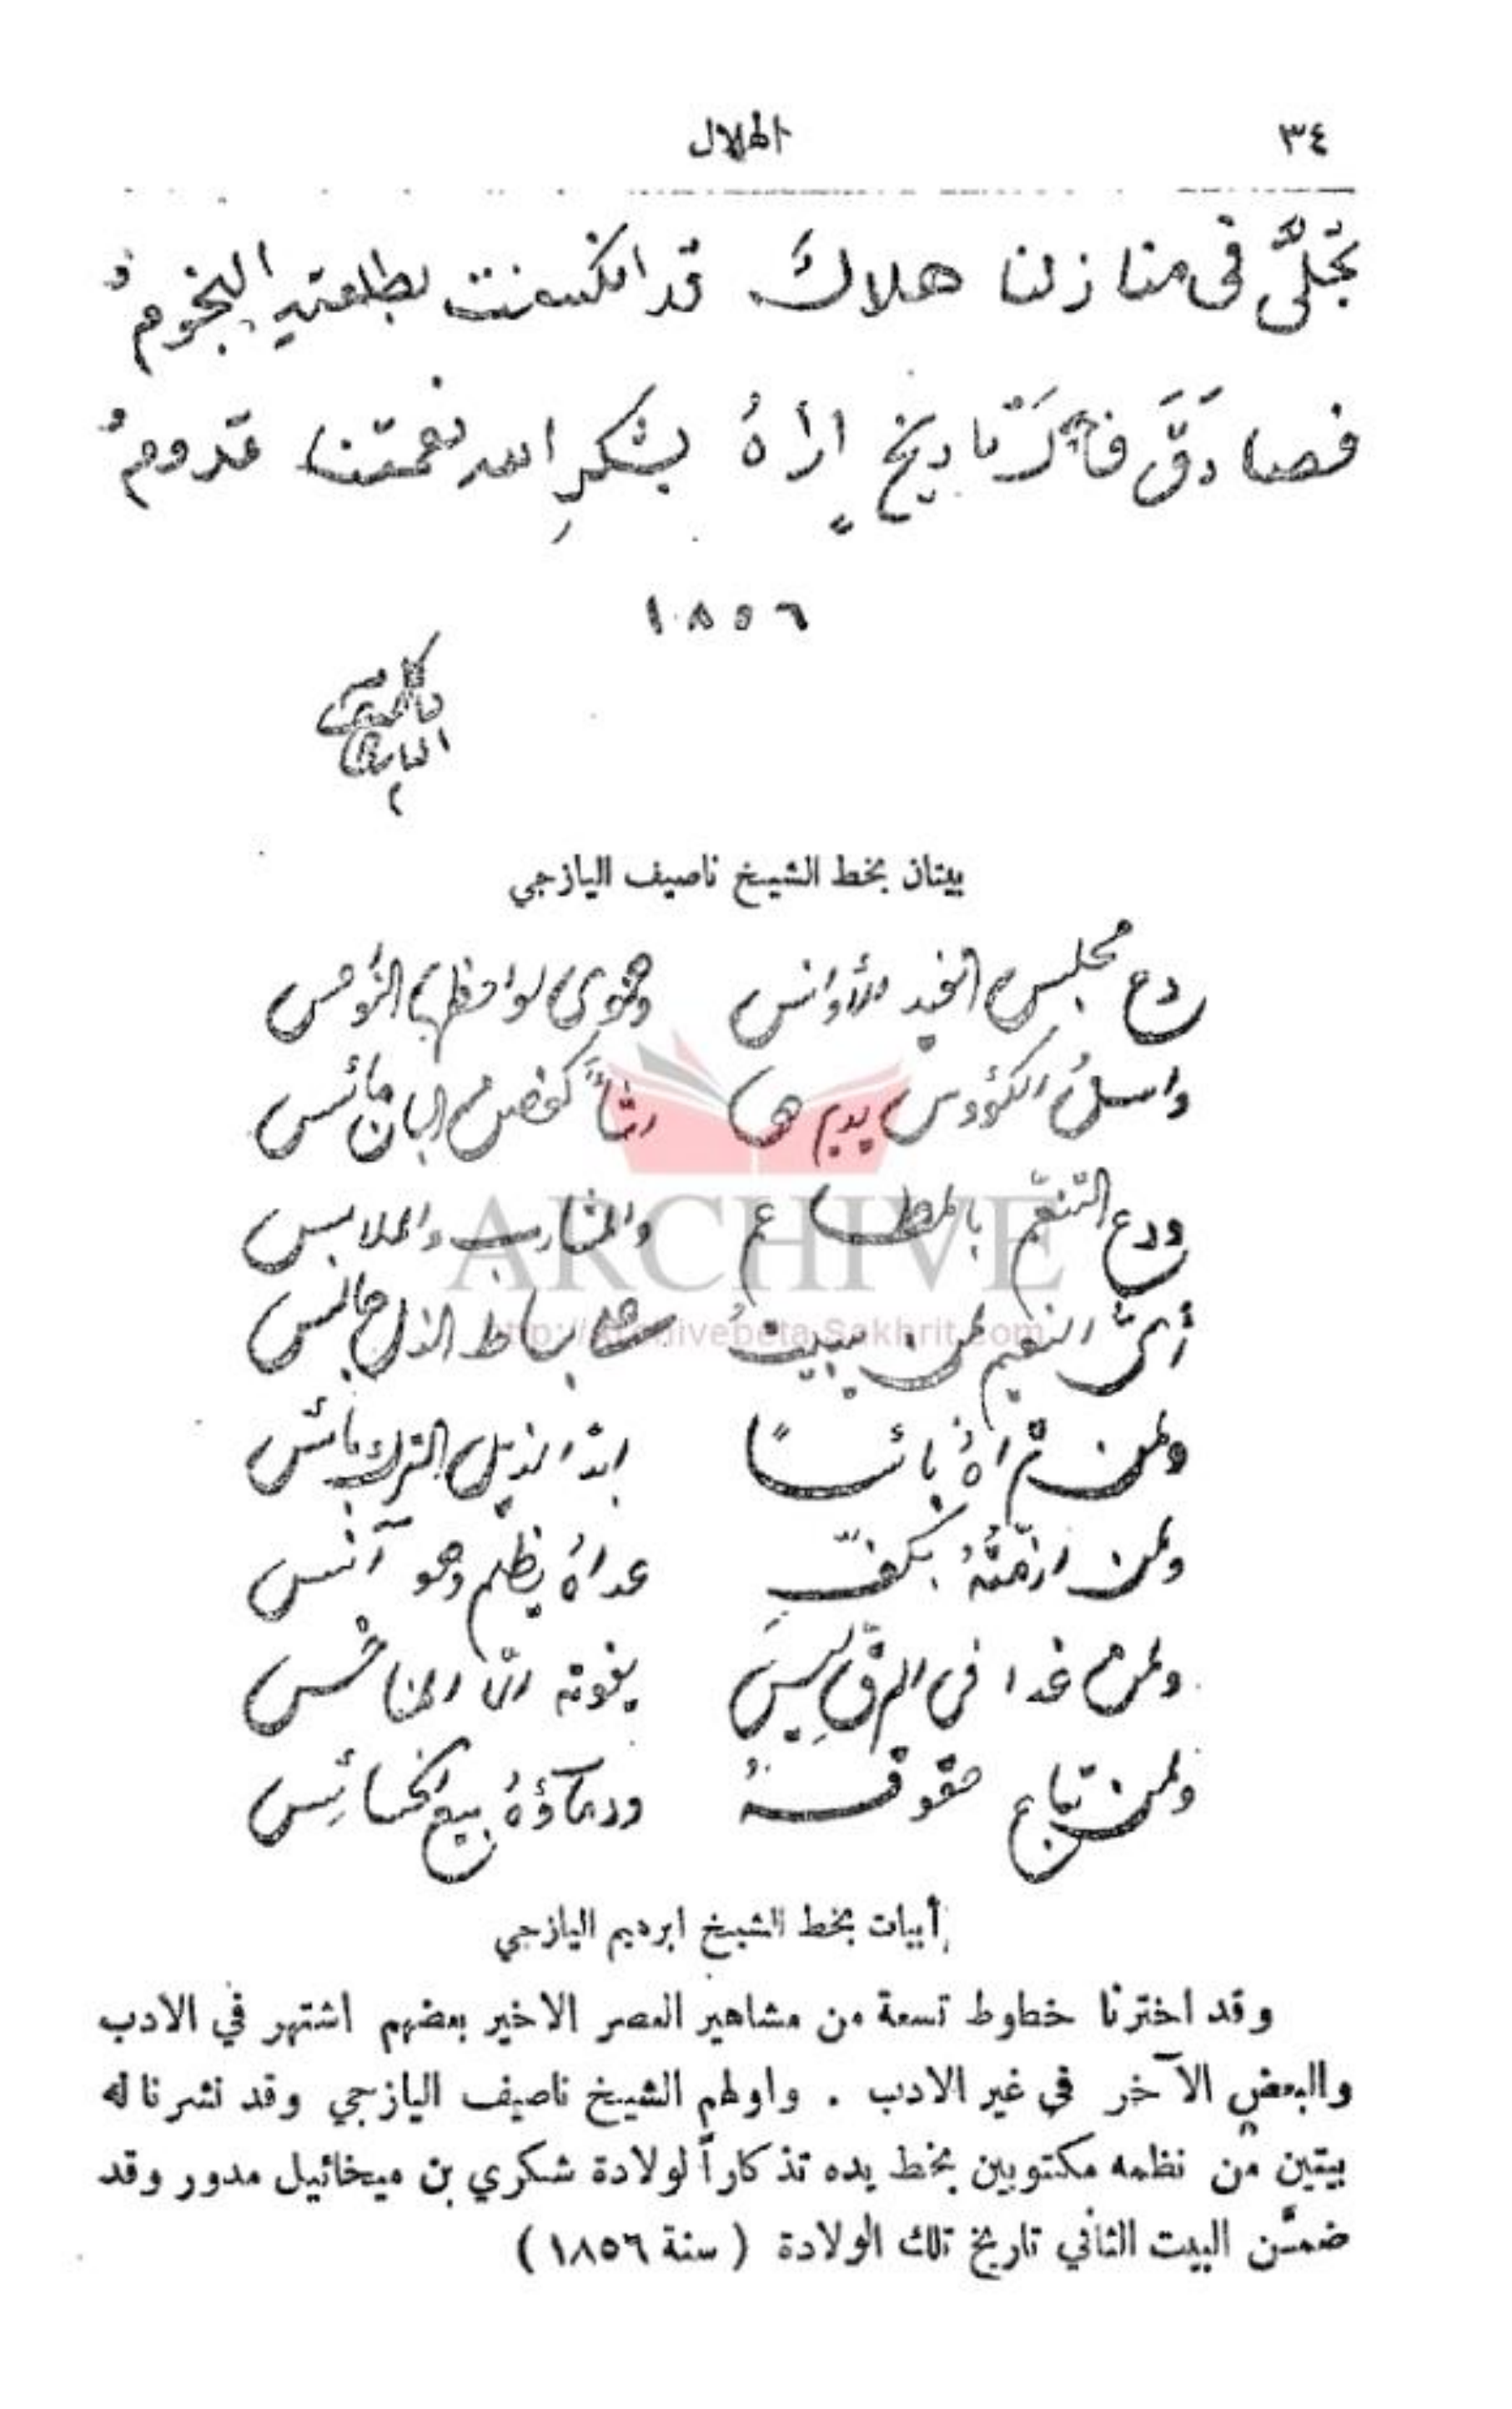 ٣٤ الهلال
تجلَّى فى منازلنا هلالٌ قد انكسفت بطلعتهِ النجومُ
فصادَقَ تاريخ أراهُ بشكرِ الله نعمتنا قدومُ
١٨٥٦
ناصيف
اليازجي
بيتان بخط الشيخ ناصيف اليازجي
دع مجلس الغيد الأوانس وهوى لواحظها النواعس
واسلُ الكؤوس يديرها رشأً كغصن البان مائس
ودع التنعّم بالمطاعم والمشارب والملابس
أيُّ النعيم لمن يبيتُ على بساط الذل جالس
ولمن تراهُ بائسًا ابدًا لذيل الترك بائس
ولمن ازمّتُهُ بكفِّ عداهُ يظلم وهو آنس
ولمن غدا فى الرقِّ ليسَ يفوته الّا المناخس
ولمن تباع حقوقهُ ودماؤهُ بيع الخسائس
أبيات بخط الشيخ ابرهيم اليازجي
وقد اخترنا خطوط تسعة من مشاهير العصر الاخير بعضهم اشتهر في الادب
والبعض الآخر في غير الادب . واولهم الشيخ ناصيف اليازجي وقد نشرنا له
بيتين من نظمه مكتوبين بخط يده تذكاراً لولادة شكري بن ميخائيل مدور وقد
ضمَّن البيت الثاني تاريخ تلك الولادة ( سنة ١٨٥٦ )
ARCHIVE
http://Archivebeta.Sakhrit.com